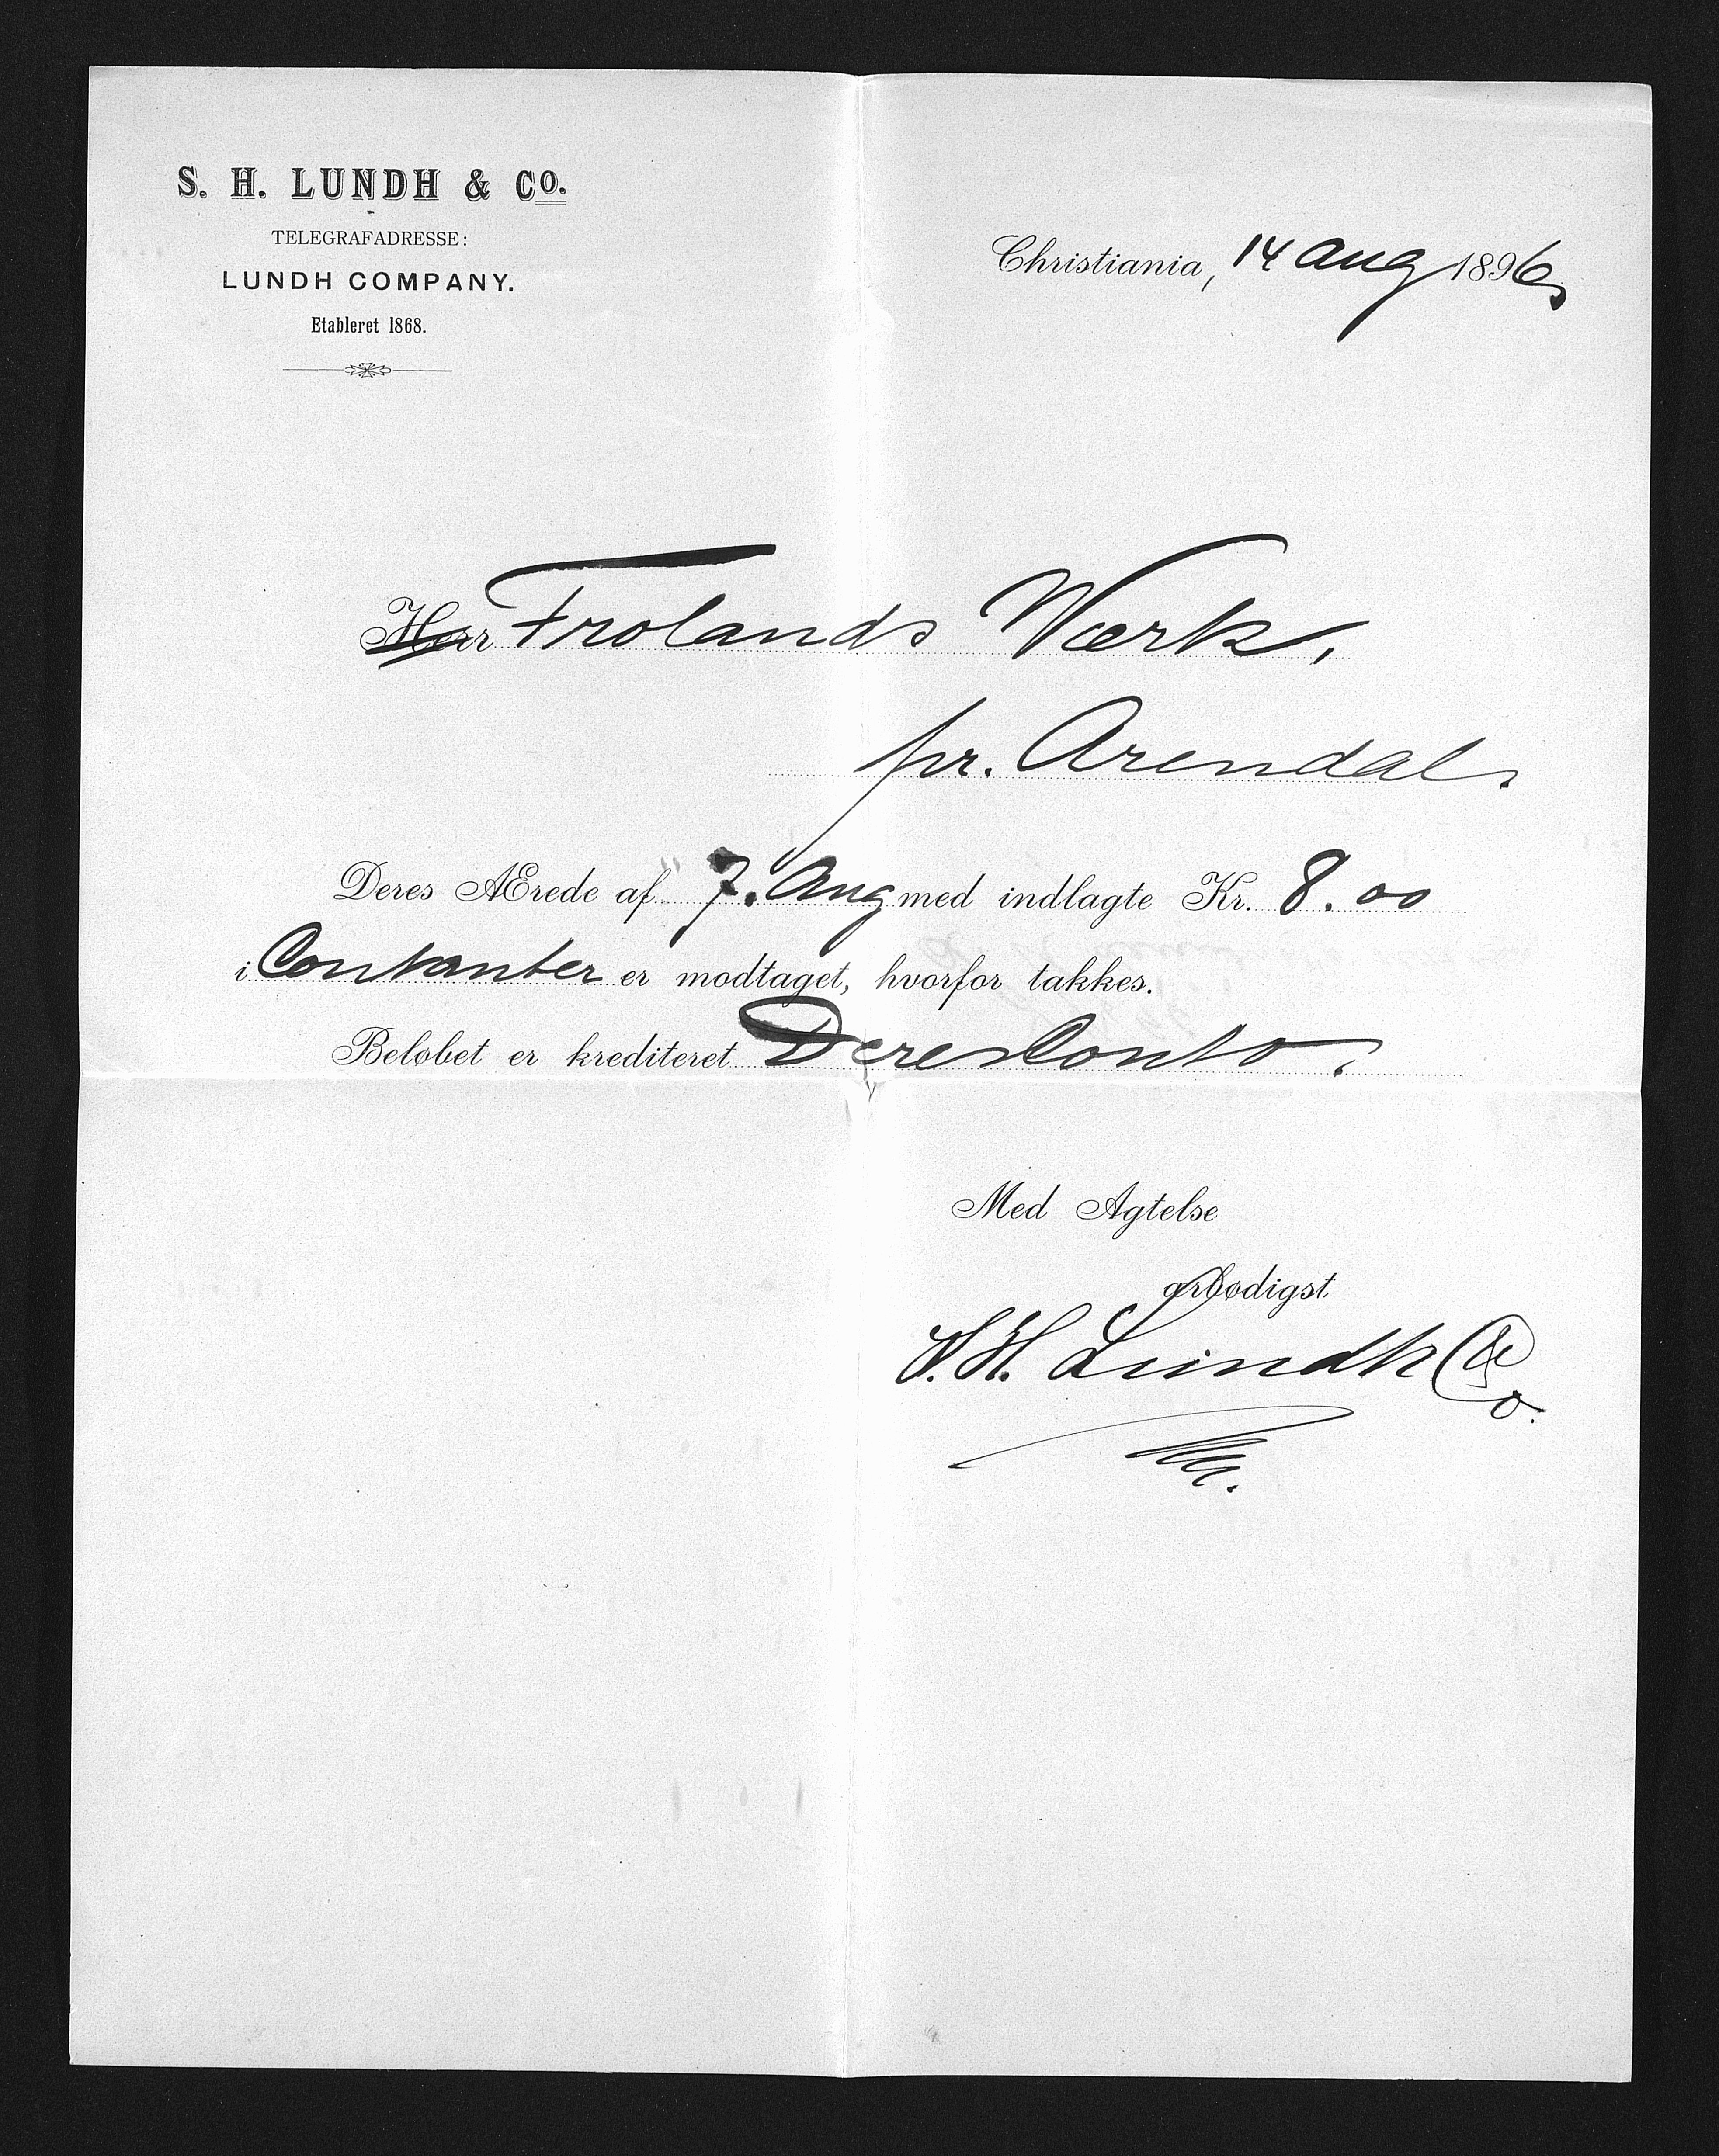 S. H. LUNDH & Co.
TELEGRAFADRESSE:
LUNDH COMPANY.
Etableret 1868.
Christiania, 14 Aug 1896,
Herr Frolands Værk,
pr. Arendal.
Deres Ærede af 7. Aug med indlagte Kr. 8.00
i Contanter er modtaget, hvorfor takkes.
Beløbet er krediteret Deres Conto.
Med Agtelse
ærbødigst
S. H. Lundh & Co.